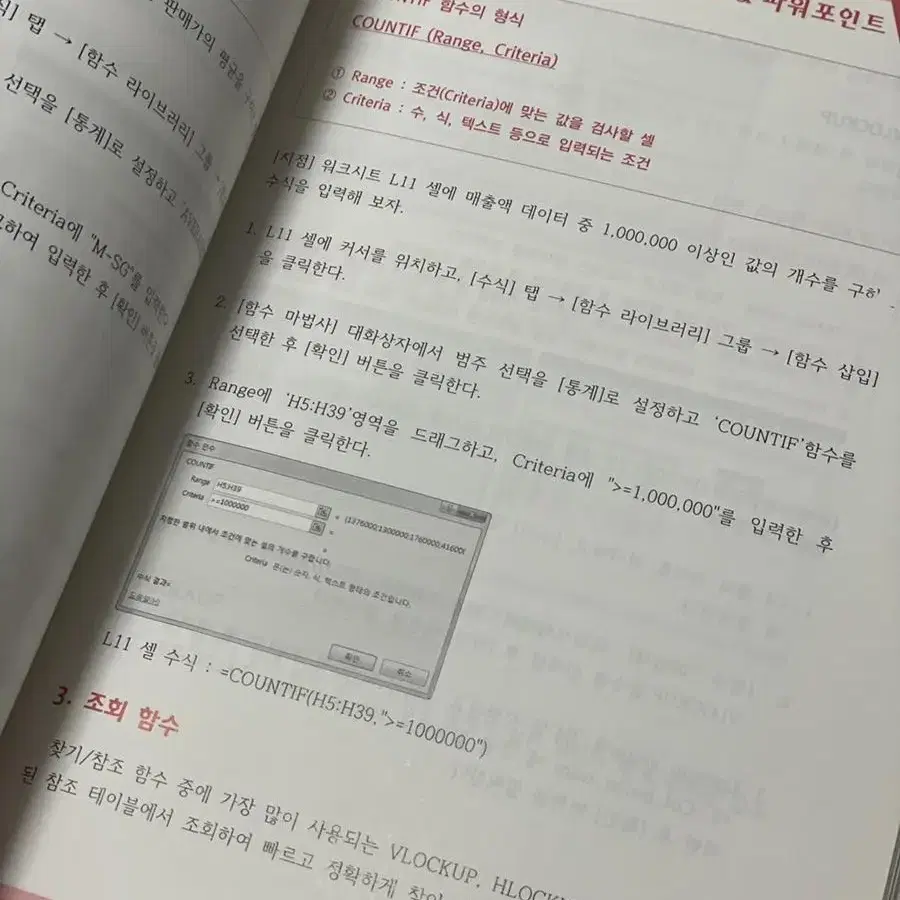 판매가의 평균을
탭 → [함수 라이브러리] 그룹
선택을 [통계]로 설정하고
Criteria에 "M-SG"를
입력한 후 [확인]
파워포인트
함수의 형식
COUNTIF (Range, Criteria)
① Range : 조건(Criteria)에 맞는 값을 검사할 셀
② Criteria : 수, 식, 텍스트 등으로 입력되는 조건
[지점] 워크시트 L11 셀에 매출액 데이터 중 1,000,000 이상인 값의 개수를
수식을 입력해 보자.
1. L11 셀에 커서를 위치하고, [수식] 탭 → [함수 라이브러리] 그룹 → [함수 삽입]
을 클릭한다.
2. [함수 마법사] 대화상자에서 범주 선택을 [통계]로 설정하고 ‘COUNTIF’함수를
선택한 후 [확인] 버튼을 클릭한다.
3. Range에 ‘H5:H39’영역을 드래그하고, Criteria에 ">=1,000,000"를 입력한 후
[확인] 버튼을 클릭한다.
함수 인수
COUNTIF
Range H5:H39
= {1376000;1300000;1760000;41600
Criteria >=1000000
=
=
지정한 범위 내에서 조건에 맞는 셀의 개수를 구합니다.
Criteria 은(는) 숫자, 식, 텍스트 형태의 조건입니다.
수식 결과=
도움말(H)
확인 취소
L11 셀 수식 : =COUNTIF(H5:H39,">=1000000")
3. 조회 함수
찾기/참조 함수 중에 가장 많이 사용되는 VLOCKUP,
된 참조 테이블에서 조회하여 빠르고 정확하게